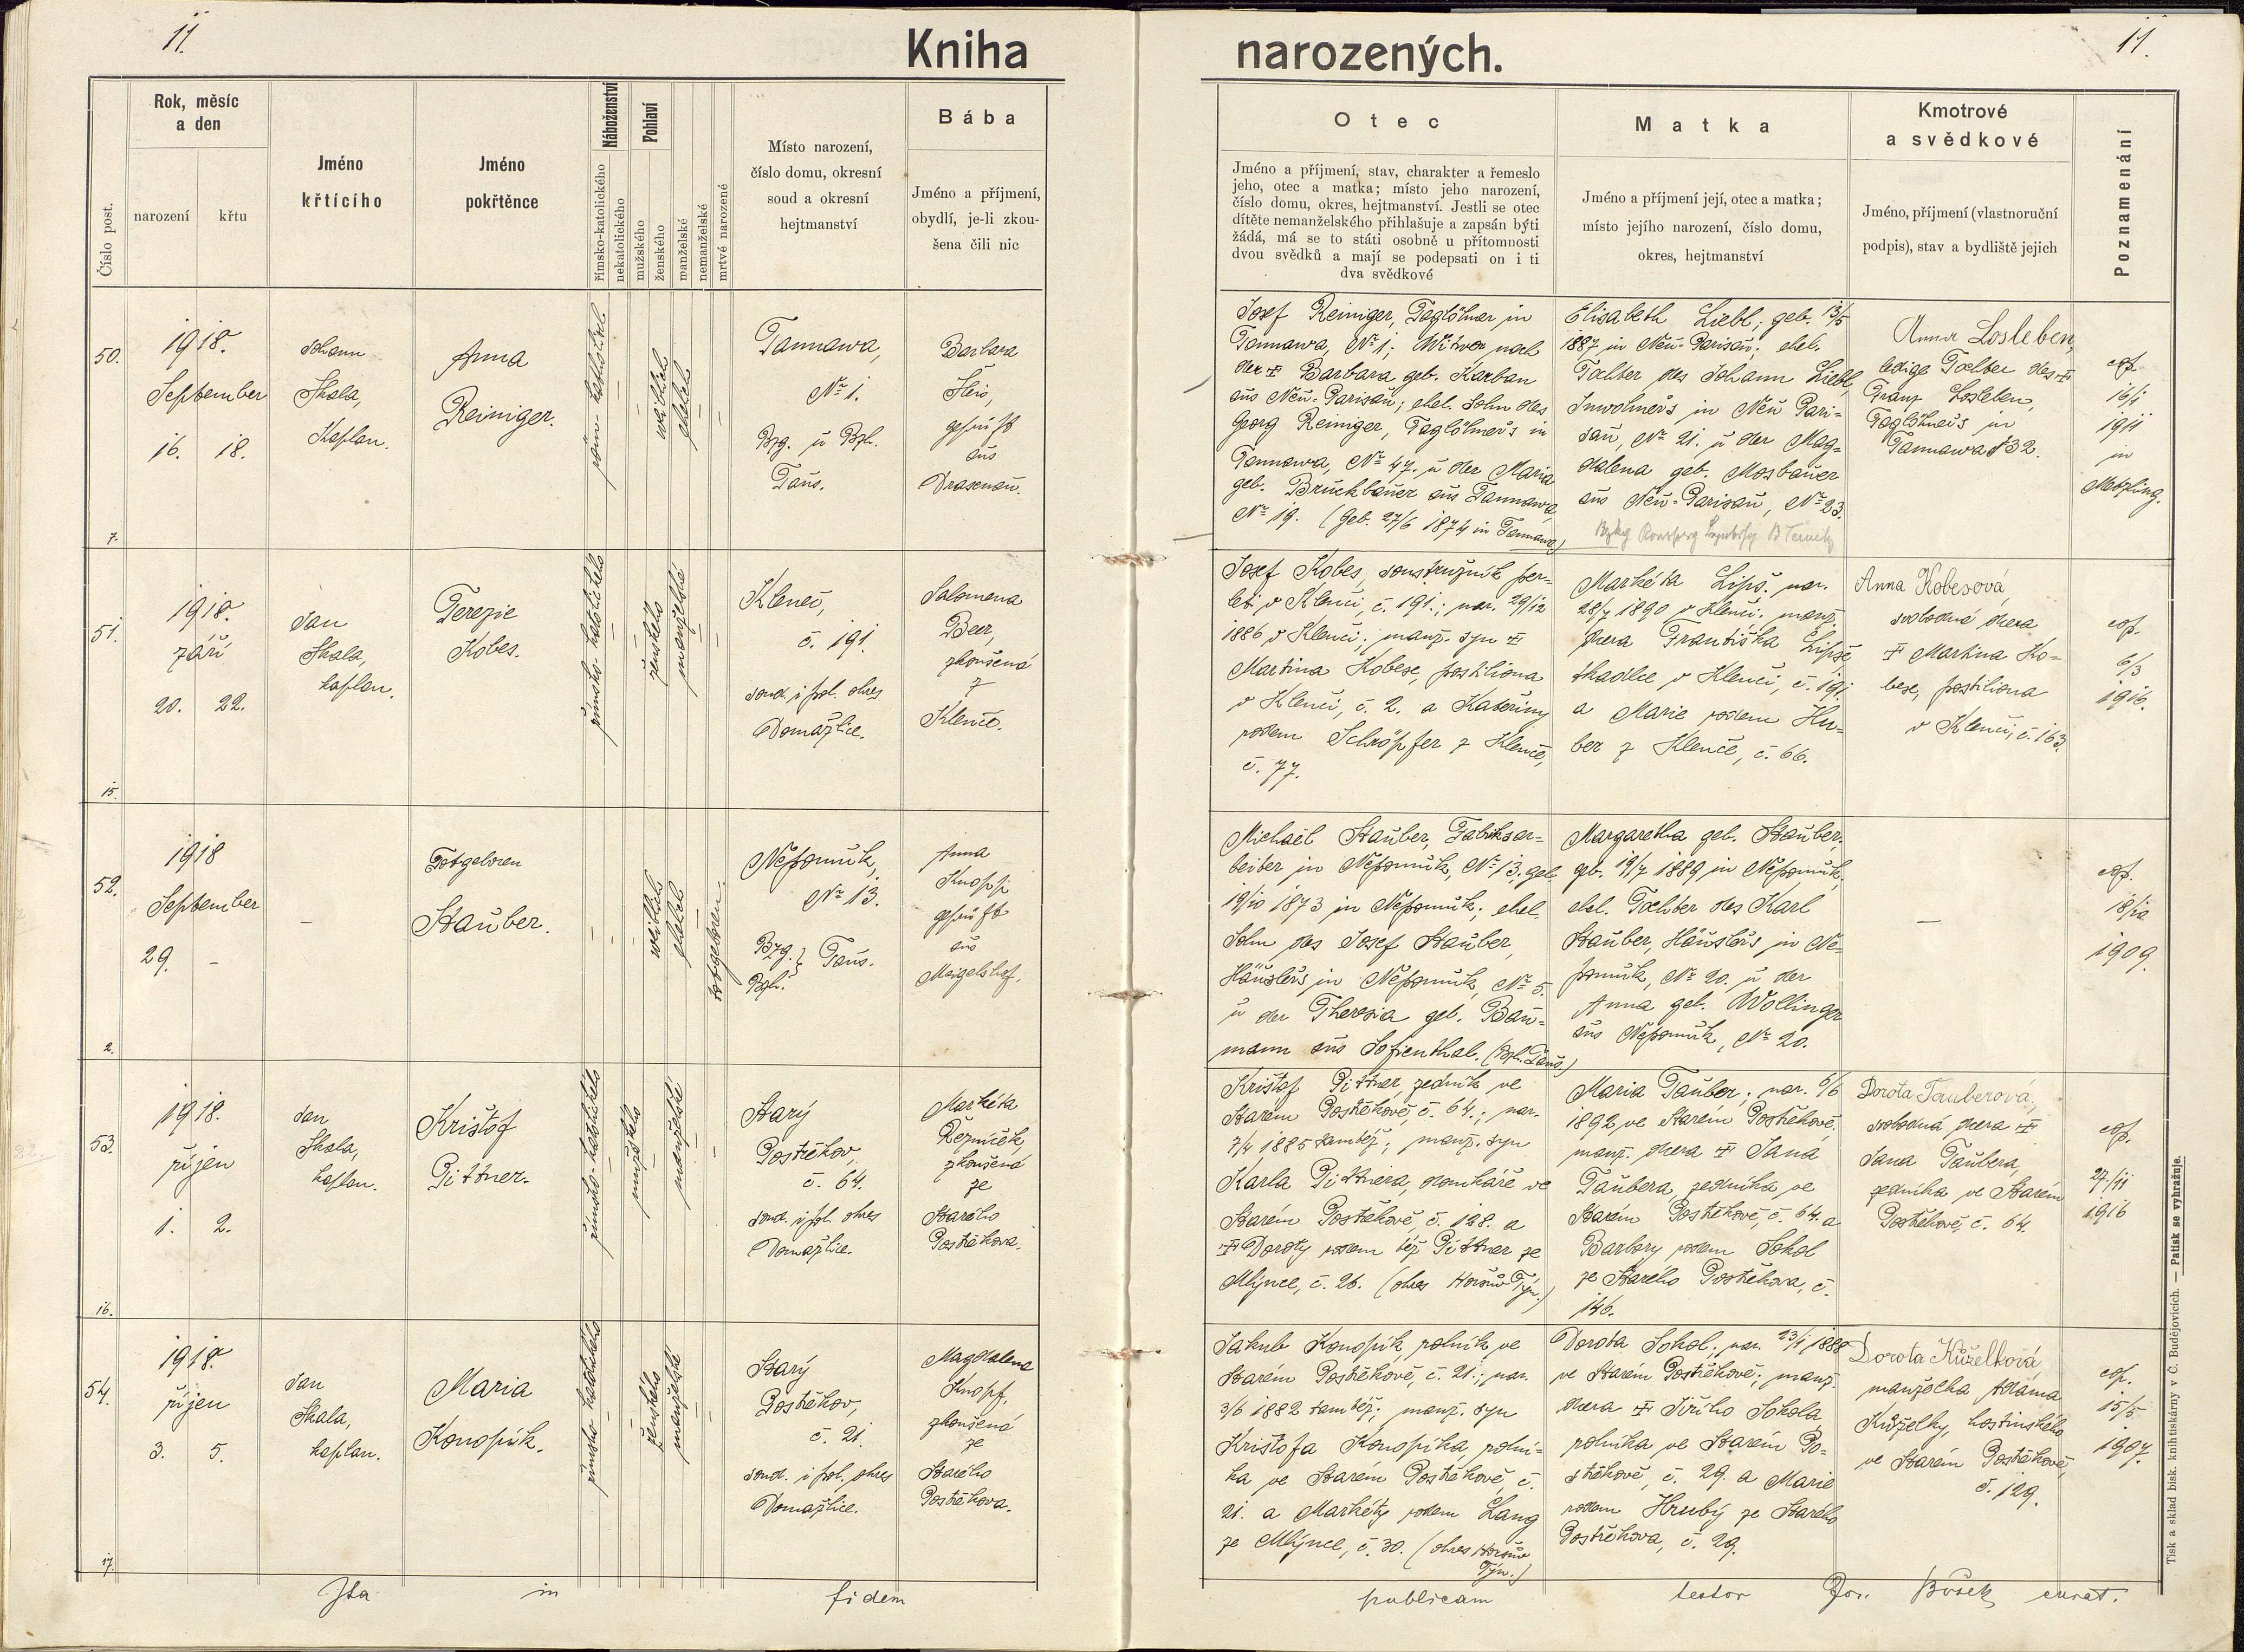 11.
Kniha
narozených.
11.
Číslo post.
Rok, měsíc
a den
narození
křtu
Jméno
křtícího
Jméno
pokřtěnce
Náboženství
římsko-katolického
nekatolického
Pohlaví
mužského
ženského
manželské
nemanželské
mrtvé narozené
Místo narození,
číslo domu, okresní
soud a okresní
hejtmanství
Bába
Jméno a příjmení,
obydlí, je-li zkou-
šena čili nic
Otec
Jméno a příjmení, stav, charakter a řemeslo
jeho, otec a matka; místo jeho narození,
číslo domu, okres, hejtmanství. Jestli se otec
dítěte nemanželského přihlašuje a zapsán býti
žádá, má se to státi osobně u přítomnosti
dvou svědků a mají se podepsati on i ti
dva svědkové
Matka
Jméno a příjmení její, otec a matka;
místo jejího narození, číslo domu,
okres, hejtmanství
Kmotrové
a svědkové
Jméno, příjmení (vlastnoruční
podpis), stav a bydliště jejich
Poznamenání
50.
7.
1918.
September
16. 18.
Johann
Skala,
Kaplan.
Anna
Reiniger.
röm-katholisch
weiblich
ehelich
Tannawa,
№ 1.
Bzg. u Bzh.
Taus.
Barbara
Fleis,
geprüft
aus
Drasenau.
Josef Reiniger, Taglöhner in
Tannawa, № 1; Witwer nach
der † Barbara geb. Karban
aus Neu-Parisau; ehel. Sohn des
Georg Reiniger, Taglöhners in
Tannawa, № 47. u der Maria
geb. Bruckbauer aus Tannawa,
№ 19. (Geb. 27/6 1874 in Tannawa)
Elisabeth Liebl; geb. 13/5
1887 in Neu-Parisau; ehel.
Tochter des Johann Liebl,
Inwohners in Neu Pari=
sau, № 21. u der Mag=
dalena geb. Mosbauer
aus Neu-Parisau, № 23.
Anna Losleben,
ledige Tochter des †
Franz Losleben,
Taglöhners in
Tannawa № 32.
cop.
16/1
1911
in
Metzling.
51.
15.
1918.
září
20. 22.
Jan
Skala,
kaplan.
Terezie
Kobes.
římsko-katolického
ženského
manželské
Kleneč,
č. 191.
soud. i pol. okres
Domažlice.
Salomena
Beer,
zkoušená
z
Klenče.
Josef Kobes, soustružník per=
leti v Klenči, č. 191.; nar. 29/12
1886 v Klenči; manž. syn †
Martina Kobese, postiliona
v Klenči, č. 2. a Kateřiny
rodem Schröpfer z Klenče,
č. 77.
Markéta Lipš. nar.
28/7 1890 v Klenči; manž.
dcera Františka Lipše,
tkadlce v Klenči, č. 191.
a Marie rodem Hu=
ber z Klenče, č. 66.
Anna Kobesová,
svobodná dcera
† Martina Ko=
bese, postiliona
v Klenči, č. 163.
cop.
6/3
1916.
52.
2.
1918
September
29. -
-
Totgeboren
Stauber.
weiblich
ehelich
totgeboren.
Nepomuk,
№ 13.
Bzg.
Bzh. } Taus.
Anna
Knopf
geprüft
aus
Maxgelshof.
Michael Stauber, Fabriksar=
beiter in Nepomuk, № 13; geb.
19/10 1873 in Nepomuk; ehel.
Sohn des Josef Stauber,
Häuslers in Nepomuk, № 5.
u der Theresia geb. Bau=
mann aus Sofienthal. (Bzh. Taus.)
Margaretha geb. Stauber,
geb. 19/7 1889 in Nepomuk,
ehel. Tochter des Karl
Stauber, Häuslers in Ne=
pomuk, № 20. u der
Anna geb. Wollinger
aus Nepomuk, № 20.
-
cop.
18/10
1909.
53.
16.
1918.
říjen
1. 2.
Jan
Skala,
kaplan.
Krištof
Pittner.
římsko-katolického
mužského
manželské
Starý
Postřekov,
č. 64.
soud. i pol. okres
Domažlice.
Markéta
Řezníček,
zkoušená
ze
Starého
Postřekova.
Krištof Pittner, zedník ve
Starém Postřekově, č. 64.; nar.
7/4 1885 tamtéž; manž. syn
Karla Pittnera, domkáře ve
Starém Postřekově, č. 128. a
† Doroty rodem též Pittner ze
Mlýnce, č. 26. (okres Horšův Týn.)
Maria Tauber; nar. 6/6
1892 ve Starém Postřekově,
manž. dcera † Jana
Taubera, zedníka ve
Starém Postřekově, č. 64. a
Barbory rodem Sokol
ze Starého Postřekova, č.
146.
Dorota Tauberová,
svobodná dcera †
Jana Taubera,
zedníka ve Starém
Postřekově, č. 64.
cop.
27/11
1916
54.
17.
1918.
říjen
3. 5.
Jan
Skala,
kaplan.
Maria
Konopík.
římsko katolického
ženského
manželské
Starý
Postřekov,
č. 21.
soud. i pol. okres
Domažlice.
Magdalena
Knopf,
zkoušená
ze
Starého
Postřekova.
Jakub Konopík, rolník ve
Starém Postřekově, č. 21.; nar.
3/6 1882 tamtéž; manž. syn
Krištofa Konopíka, rolní=
ka ve Starém Postřekově, č.
21. a Markéty rodem Lang
ze Mlýnce, č. 30. (okres Horšův
Týn.)
Dorota Sokol; nar. 23/1 1888
ve Starém Postřekově; manž.
dcera † Jiřího Sokola,
rolníka ve Starém Po=
střekově, č. 29. a Marie
rodem Hrubý ze Starého
Postřekova, č. 29.
Dorota Kuželková
manželka Adama
Kuželky, hostinského
ve Starém Postřekově,
č. 129.
cop.
15/5
1907.
Ita in fidem publicam testor Jos. Bošek curat.
Tisk a sklad bisk. knihtiskárny v Č. Budějovicích. — Patisk se vyhražuje.